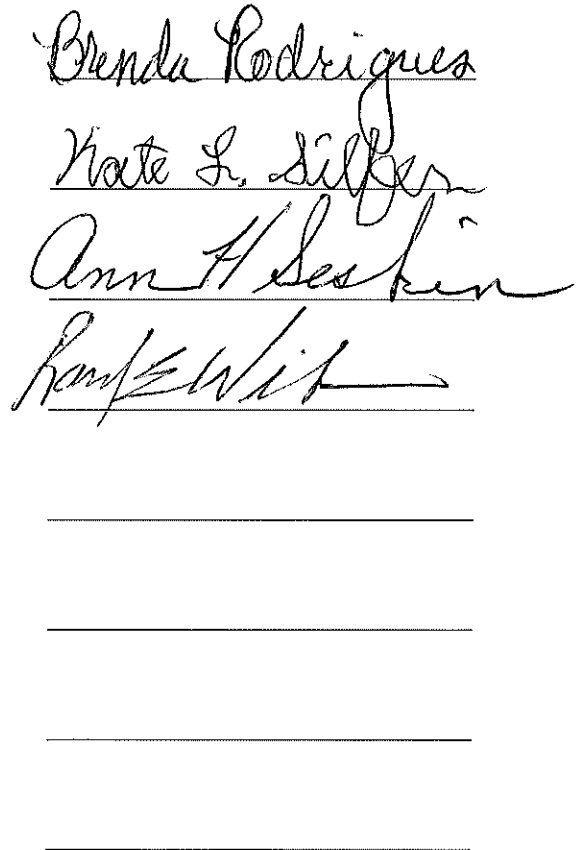 Brenda Rodrigues
Kate L. Silfen
Ann H Seskin
E